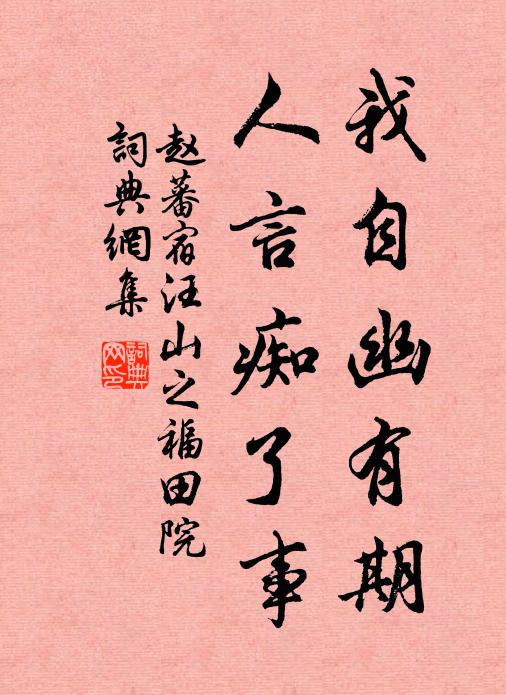 我自幽有期
人言痴了事
赵蕃宿汪山之福田院
詞典網集
詞典
网印